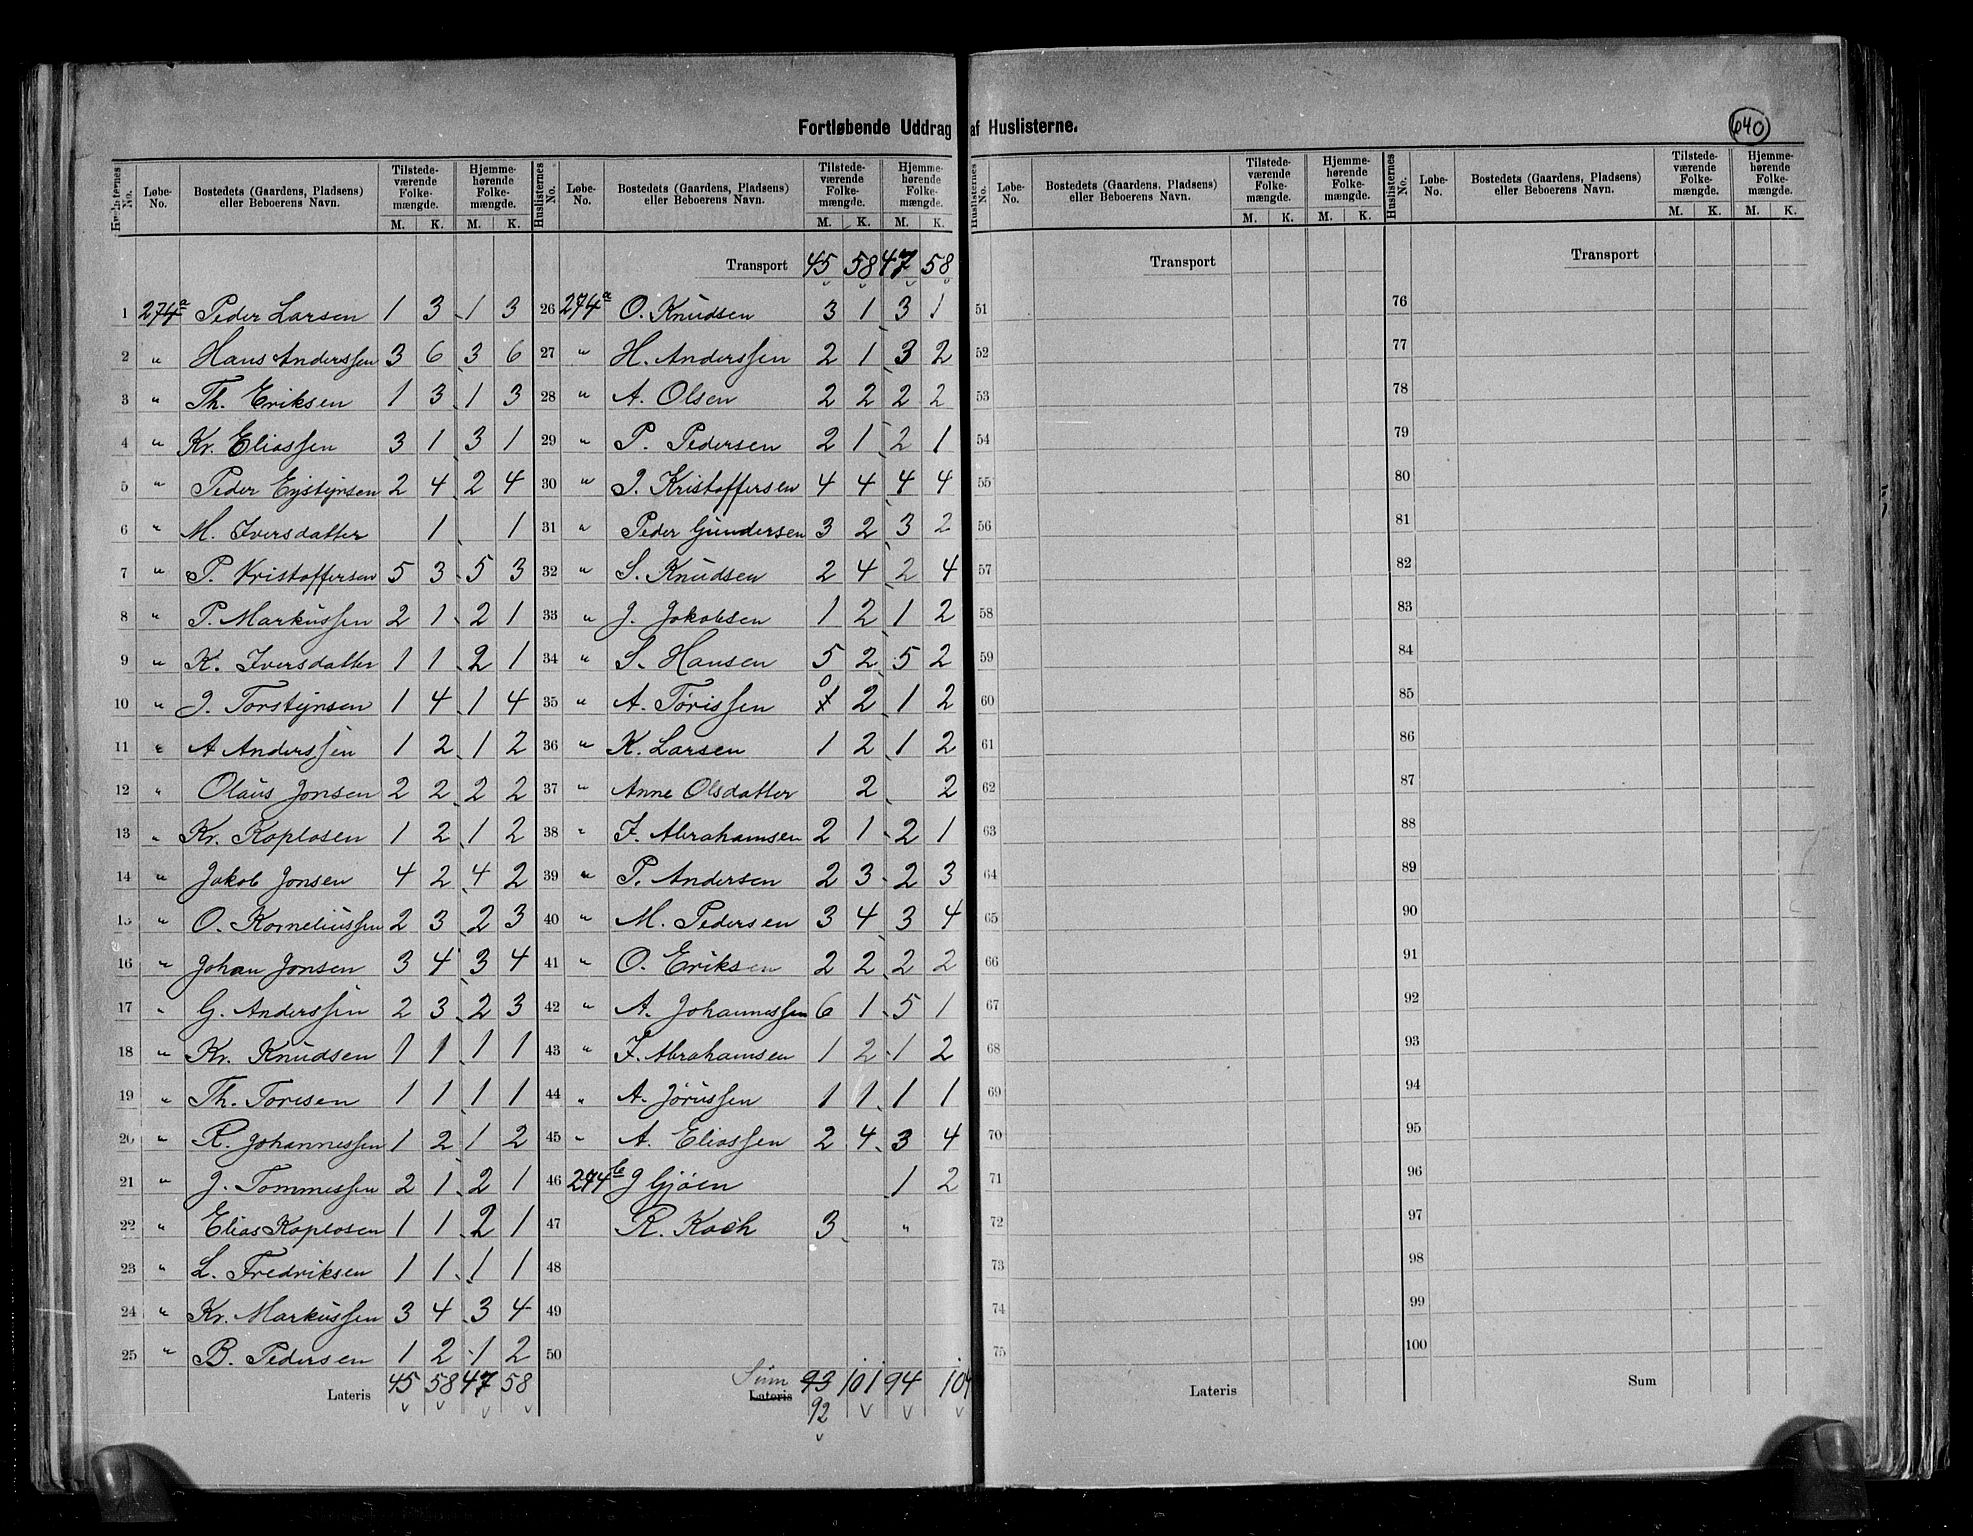 Fortløbende Uddrag af Huslisterne.
640
Huslisternes No. Løbe-No. Bostedets (Gaardens, Pladsens) eller Beboerens Navn. Tilstedeværende Folkemængde. M. K. Hjemmehørende Folkemængde. M. K.
1 274a Peder Larsen 1 3 1 3
2 " Hans Anderssen 3 6 3 6
3 " Th. Eriksen 1 3 1 3
4 " Kr. Eliassen 3 1 3 1
5 " Peder Eystijnsen 2 4 2 4
6 " M. Iversdatter 1 1
7 " P. Kristoffersen 5 3 5 3
8 " P. Markussen 2 1 2 1
9 " K. Iversdatter 1 1 2 1
10 " J. Torstijnsen 1 4 1 4
11 " A Anderssen 1 2 1 2
12 " Olaus Jonsen 2 2 2 2
13 " Kr. Koplosen 1 2 1 2
14 " Jakob Jonsen 4 2 4 2
15 " O. Korneliussen 2 3 2 3
16 " Johan Jonsen 3 4 3 4
17 " G. Anderssen 2 3 2 3
18 " Kr. Knudsen 1 1 1 1
19 " Th. Toresen 1 1 1 1
20 " R. Johannessen 1 2 1 2
21 " J. Tommessen 2 1 2 1
22 " Elias Koplosen 1 1 2 1
23 " L. Fredriksen 1 1 1 1
24 " Kr. Markussen 3 4 3 4
25 " B. Pedersen 1 2 1 2
Lateris 45 58 47 58
Huslisternes No. Løbe-No. Bostedets (Gaardens, Pladsens) eller Beboerens Navn. Tilstedeværende Folkemængde. M. K. Hjemmehørende Folkemængde. M. K.
Transport 45 58 47 58
26 274a O. Knudsen 3 1 3 1
27 " H. Anderssen 2 1 3 2
28 " A. Olsen 2 2 2 2
29 " P. Pedersen 2 1 2 1
30 " J. Kristoffersen 4 4 4 4
31 " Peder Gundersen 3 2 3 2
32 " S. Knudsen 2 4 2 4
33 " J. Jakobsen 1 2 1 2
34 " S. Hansen 5 2 5 2
35 " A. Tørissen 0 2 1 2
36 " K. Larsen 1 2 1 2
37 " Anne Olsdatter 2 2
38 " F. Abrahamsen 2 1 2 1
39 " P. Andersen 2 3 2 3
40 " M. Pedersen 3 4 3 4
41 " O. Eriksen 2 2 2 2
42 " A. Johannessen 6 1 5 1
43 " F. Abrahamsen 1 2 1 2
44 " A. Jørussen 1 1 1 1
45 " A. Eliassen 2 4 3 4
46 274b J Gjøen 1 2
47 R. Koch 3 "
48
49
50
Sum Lateris 93 101 94 104
92
Huslisternes No. Løbe-No. Bostedets (Gaardens, Pladsens) eller Beboerens Navn. Tilstedeværende Folkemængde. M. K. Hjemmehørende Folkemængde. M. K.
Transport
51
52
53
54
55
56
57
58
59
60
61
62
63
64
65
66
67
68
69
70
71
72
73
74
75
Lateris
Huslisternes No. Løbe-No. Bostedets (Gaardens, Pladsens) eller Beboerens Navn. Tilstedeværende Folkemængde. M. K. Hjemmehørende Folkemængde. M. K.
Transport
76
77
78
79
80
81
82
83
84
85
86
87
88
89
90
91
92
93
94
95
96
97
98
99
100
Sum